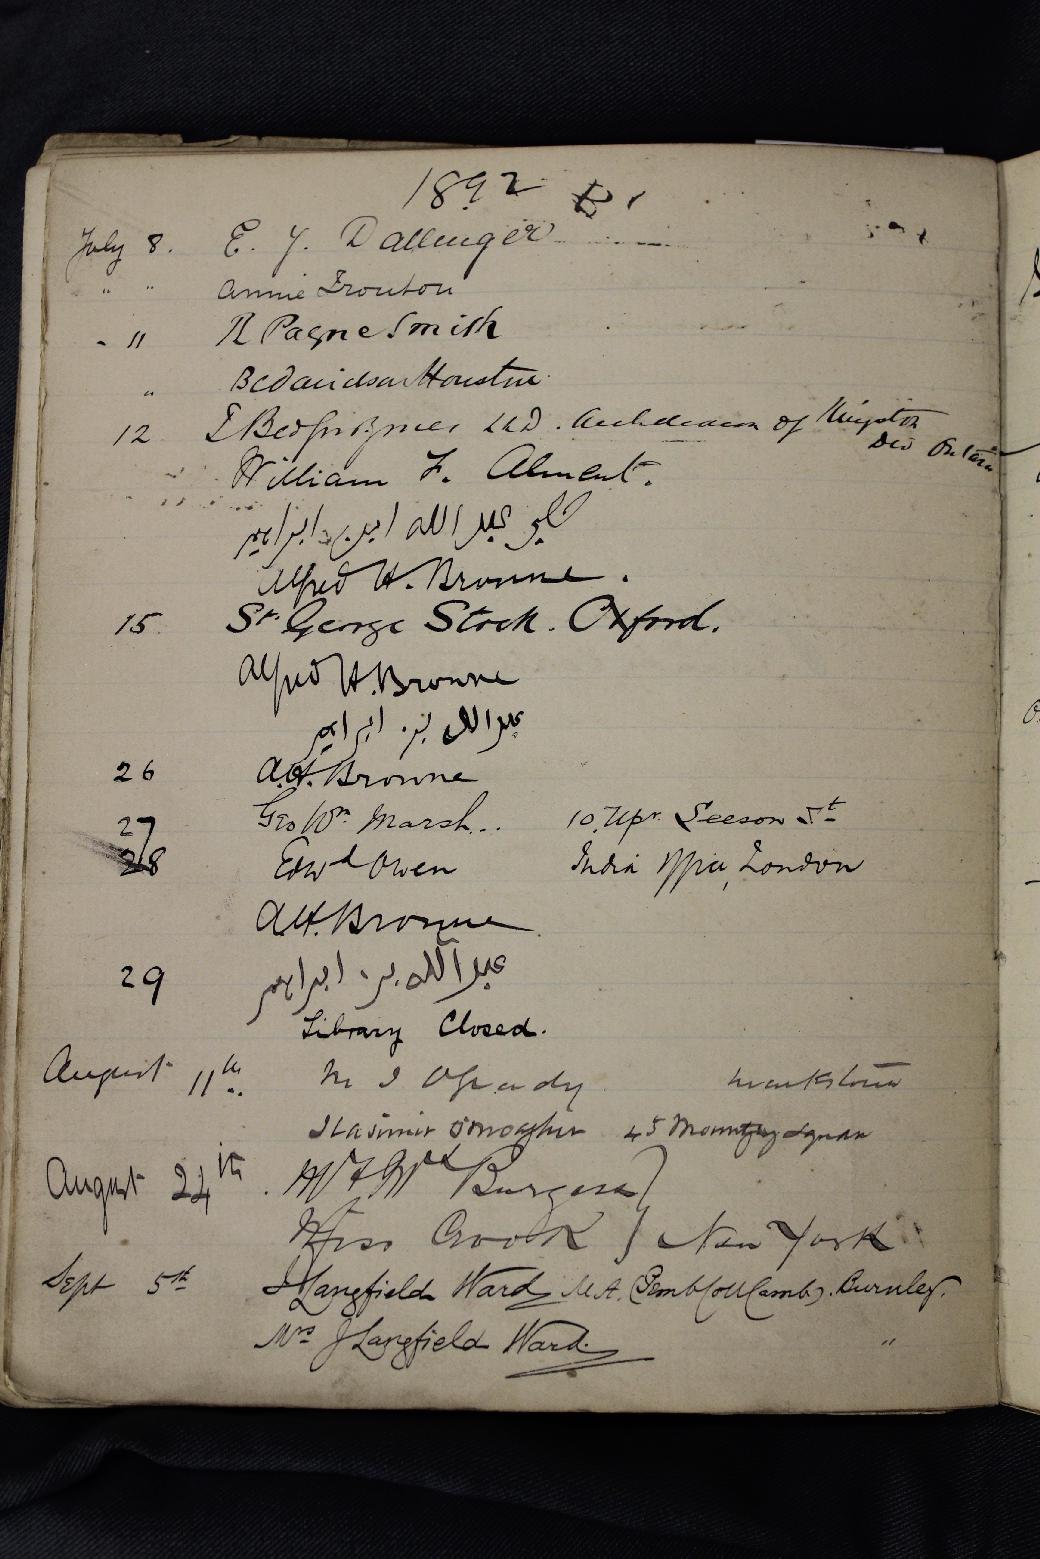 1892
July 8. E. J. Dallinger
" " Annie Trouton
" 11 R Payne Smith
" B C Davidson Houston
12 T Bedford Jones LL.D. Archdeacon of Kingston
Dio Ontario
William F. Alment.
عبد الله ابن ابراهيم
Alfred H. Bronne.
15 St. George Stock. Oxford.
Alfred H. Bronne
عبد الله بن ابراهيم
26 A.H. Bronne
27 Geo Wm Marsh.. 10, Upr. Leeson St
28 Edwd Owen India Office, London
A.H. Bronne
29 عبد الله بن ابراهيم
Library Closed.
August 11th M J O'Grady
O'Meagher 45 Mountjoy Square
August 24th. Mr & Mrs Burgess
Miss Crook New York
Sept 5th J Langfield Ward M.A. (Pemb Coll Camb). Burnley.
Mrs J Langfield Ward. "